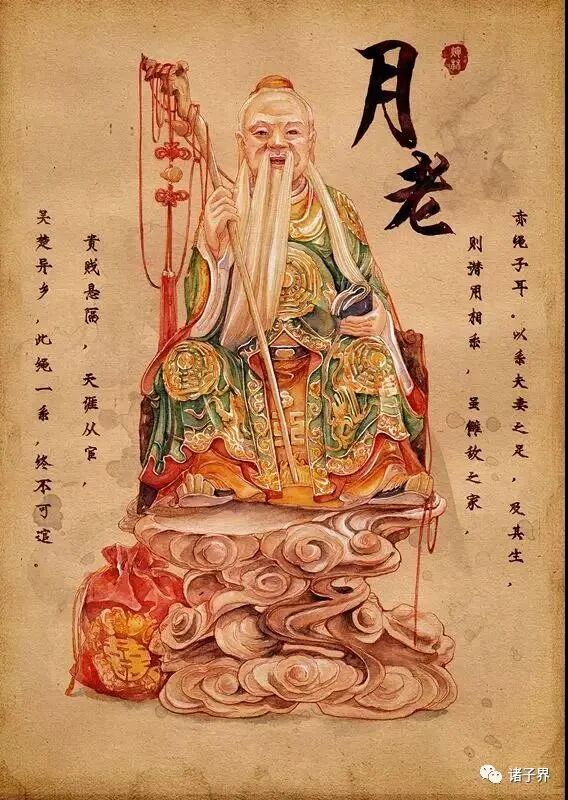 月老
赤绳子耳。以系夫妻之足，及其生，
则潜用相系，虽雠敌之家，
贵贱悬隔，天涯从宦，
吴楚异乡，此绳一系，终不可逭。
诸子界